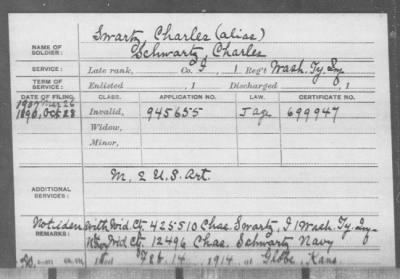 Swartz, Charles (alias)
NAME OF SOLDIER: Schwartz, Charles
SERVICE: Late rank, Co. I, 1 Reg't Wash. Ty. Inf
TERM OF SERVICE: Enlisted , 1 Discharged , 1
DATE OF FILING. CLASS. APPLICATION NO. LAW. CERTIFICATE NO.
1907 Mar 26
1890, Oct 28 Invalid, 945655 J 699947
Widow,
Minor,
ADDITIONAL SERVICES: M, 2 U.S. Art.
REMARKS: Not iden with Ctf. 425510 Chas. Swartz, I 1 Wash. Ty. Inf
Ctf 12496 Chas. Schwartz Navy
Feb. 14, 1914 at Globe, Kans.